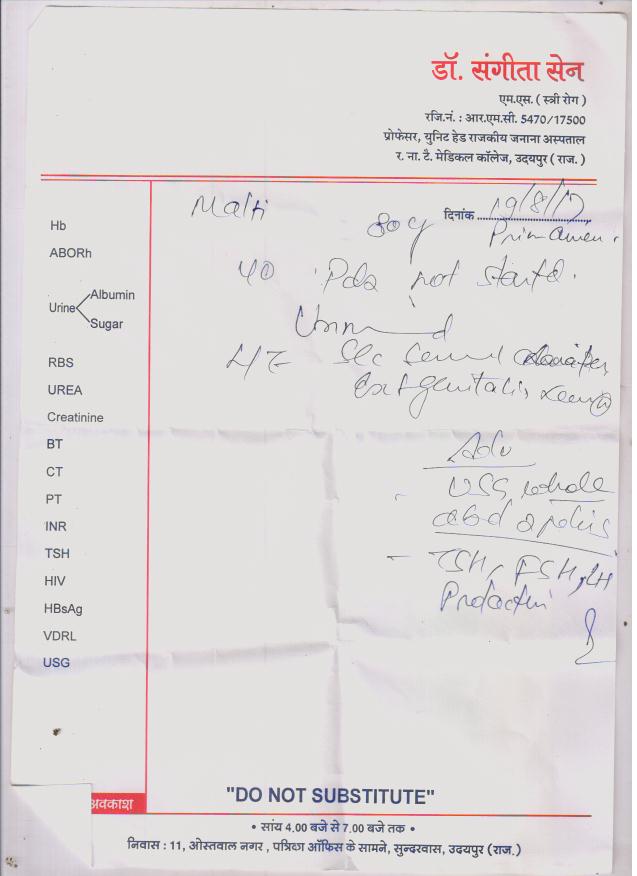 डॉ. संगीता सेन
एम.एस. ( स्त्री रोग )
रजि.नं. : आर.एम.सी. 5470/17500
प्रोफेसर, युनिट हेड राजकीय जनाना अस्पताल
र. ना. टै. मेडिकल कॉलेज, उदयपुर ( राज. )
Malti
दिनांक 19/8/17
Hb
ABORh
Urine
Albumin
Sugar
RBS
UREA
Creatinine
BT
CT
PT
INR
TSH
HIV
HBsAg
VDRL
USG
not started.
Ext genitalis
Adv
- USG whole
abd
- TSH, FSH, LH
Prolactin
अवकाश
"DO NOT SUBSTITUTE"
• सांय 4.00 बजे से 7.00 बजे तक •
निवास : 11, ओस्तवाल नगर , पत्रिका ऑफिस के सामने, सुन्दरवास, उदयपुर (राज.)